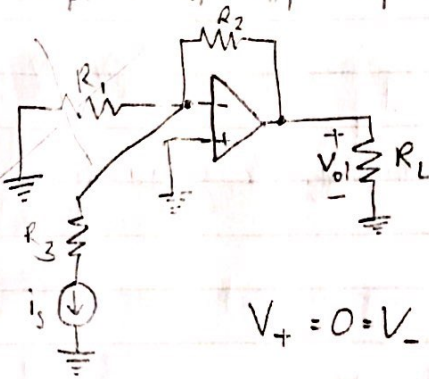 R2
R1
-
+
+
Vo1
-
RL
R3
is
V+ = 0 = V-